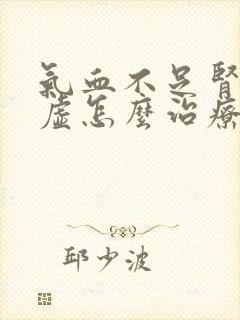 氣血不足腎
虛怎麼治療
邱少波